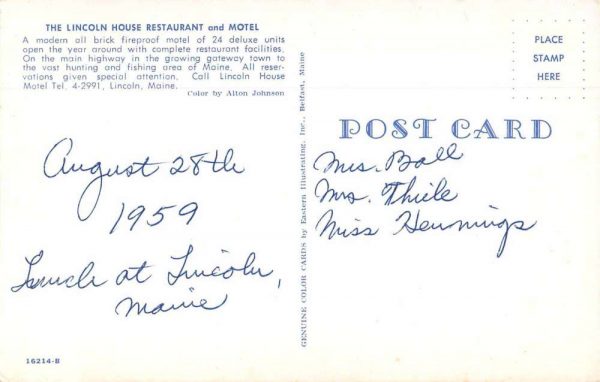 THE LINCOLN HOUSE RESTAURANT and MOTEL
A modern all brick fireproof motel of 24 deluxe units
open the year around with complete restaurant facilities.
On the main highway in the growing gateway town to
the vast hunting and fishing area of Maine. All reser-
vations given special attention. Call Lincoln House
Motel Tel. 4-2991, Lincoln, Maine.
Color by Alton Johnson
August 28th
1959
Lunch at Lincoln,
Maine
16214-B
GENUINE COLOR CARDS by Eastern Illustrating, Inc., Belfast, Maine
PLACE
STAMP
HERE
POST CARD
Mrs. Ball
Mrs. Thiele
Miss Hennings